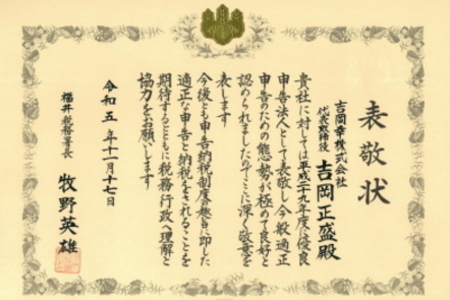 表敬状
吉岡幸株式会社
代表取締役 吉岡正盛殿
貴社に対しては平成二九年度に優良
申告法人として表敬し今般適正
申告のための態勢が極めて良好と
認められましたのでここに深く敬意を
表します
今後とも申告納税制度の趣旨に即した
適正な申告と納税をされることを
期待するとともに税務行政へ理解と
協力をお願いします
令和五年十一月十七日
福井税務署長 牧野英雄